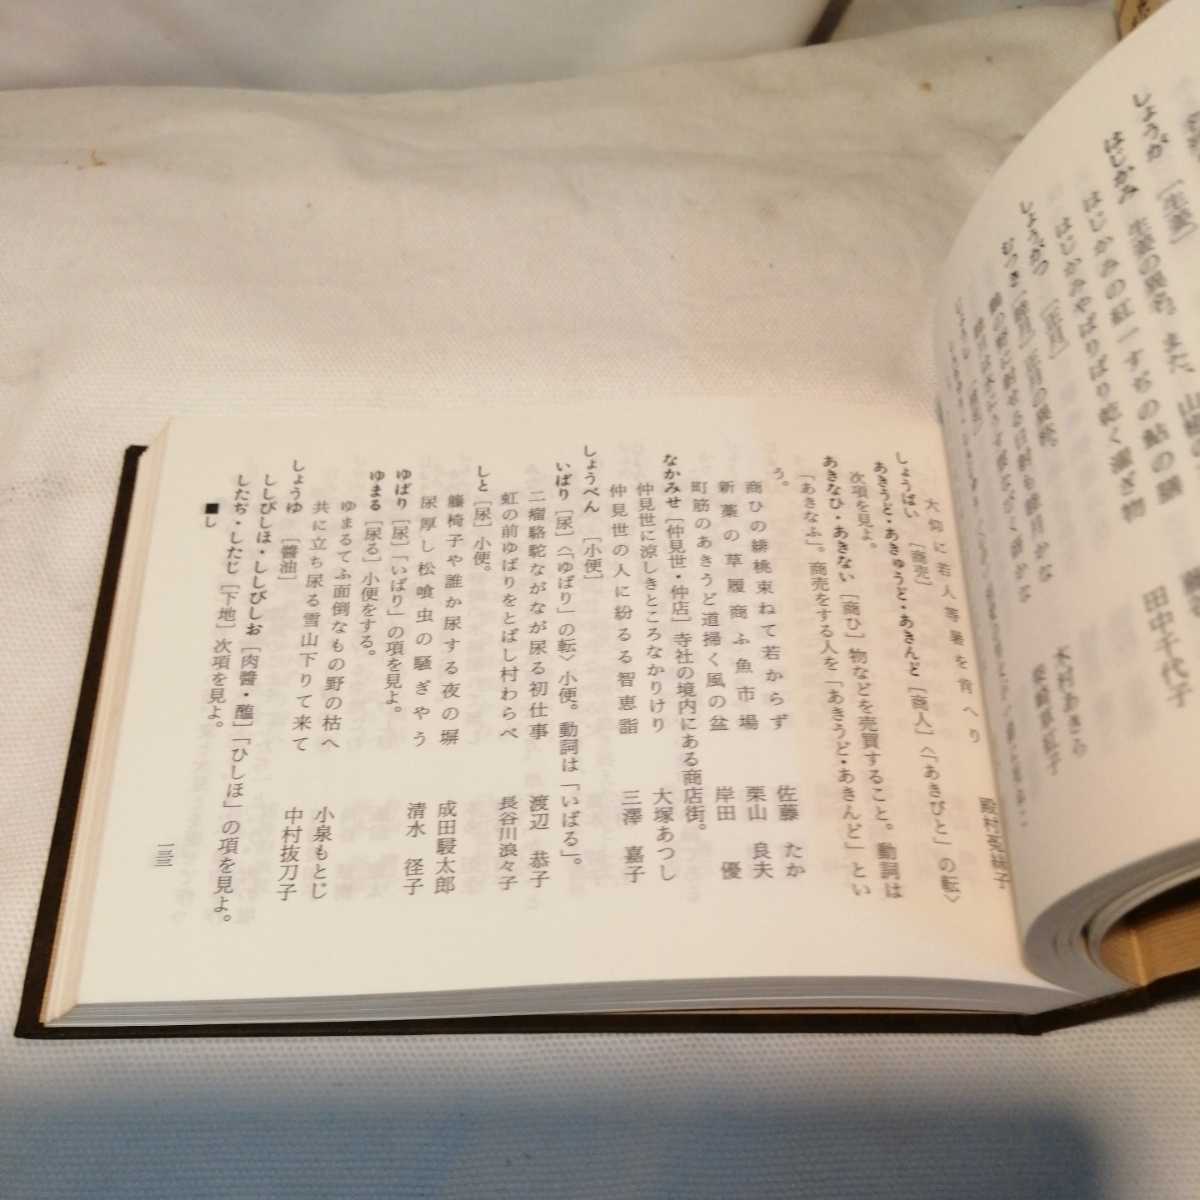 しょうが［生姜］
はじかみ　生姜の異名。また、山椒の
はじかみの紅一すぢの鮎の膳
はじかみやばりばり乾く濯ぎ物　田中千代子
しょうがつ［正月］
むつき［睦月］正月の異称。
木村あきら
大仰に若人等暑を背へり
しょうばい［商売］
あきうど・あきゅうど・あきんど［商人］〈「あきびと」の転〉
次項を見よ。
あきなひ・あきない［商ひ］物などを売買すること。動詞は
「あきなふ」。商売をする人を「あきうど・あきんど」とい
う。
商ひの緋桃束ねて若からず　佐藤　たか
新藁の草履商ふ魚市場　栗山　良夫
町筋のあきうど道掃く風の盆　岸田　優
なかみせ［仲見世・仲店］寺社の境内にある商店街。
仲見世に涼しきところなかりけり　大塚あつし
仲見世の人に紛るる智恵詣　三澤　嘉子
しょうべん［小便］
いばり［尿］〈「ゆばり」の転〉小便。動詞は「いばる」。
二瘤駱駝ながなが尿る初仕事　渡辺　恭子
虹の前ゆばりをとばし村わらべ　長谷川浪々子
しと［尿］小便。
籐椅子や誰か尿する夜の塀　成田駸太郎
尿厚し松喰虫の騒ぎやう　清水　径子
ゆばり［尿］「いばり」の項を見よ。
ゆまる［尿る］小便をする。
ゆまるてふ面倒なもの野の枯へ　小泉もとじ
共に立ち尿る雪山下りて来て　中村抜刀子
しょうゆ［醬油］
ししびしほ・ししびしお［肉醬・醢］「ひしほ」の項を見よ。
したぢ・したじ［下地］次項を見よ。
■し
一三三